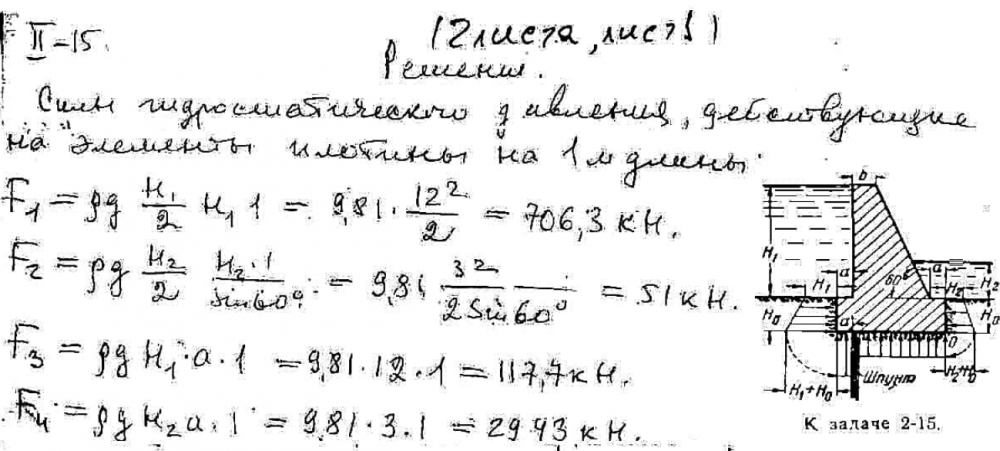 II-15.
(2 листа, лист 1)
Решение.
Силы гидростатического давления, действующие
на элементы плотины на 1 м длины:
F₁ = ρg H₁/2 H₁ 1 = 9,81 · 12²/2 = 706,3 кН.
F₂ = ρg H₂/2 H₂·1/sin60° = 9,81 3²/2 sin 60° = 51 кН.
F₃ = ρg H₁·a·1 = 9,81·12·1 = 117,7 кН.
F₄ = ρg H₂ a·1 = 9,81·3·1 = 29,43 кН.
b
H₁
a
H₁
60°
A
a
H₂
H₂
H₀
H₀
a
O
Шпунт
H₁+H₀
H₂+H₀
К задаче 2-15.